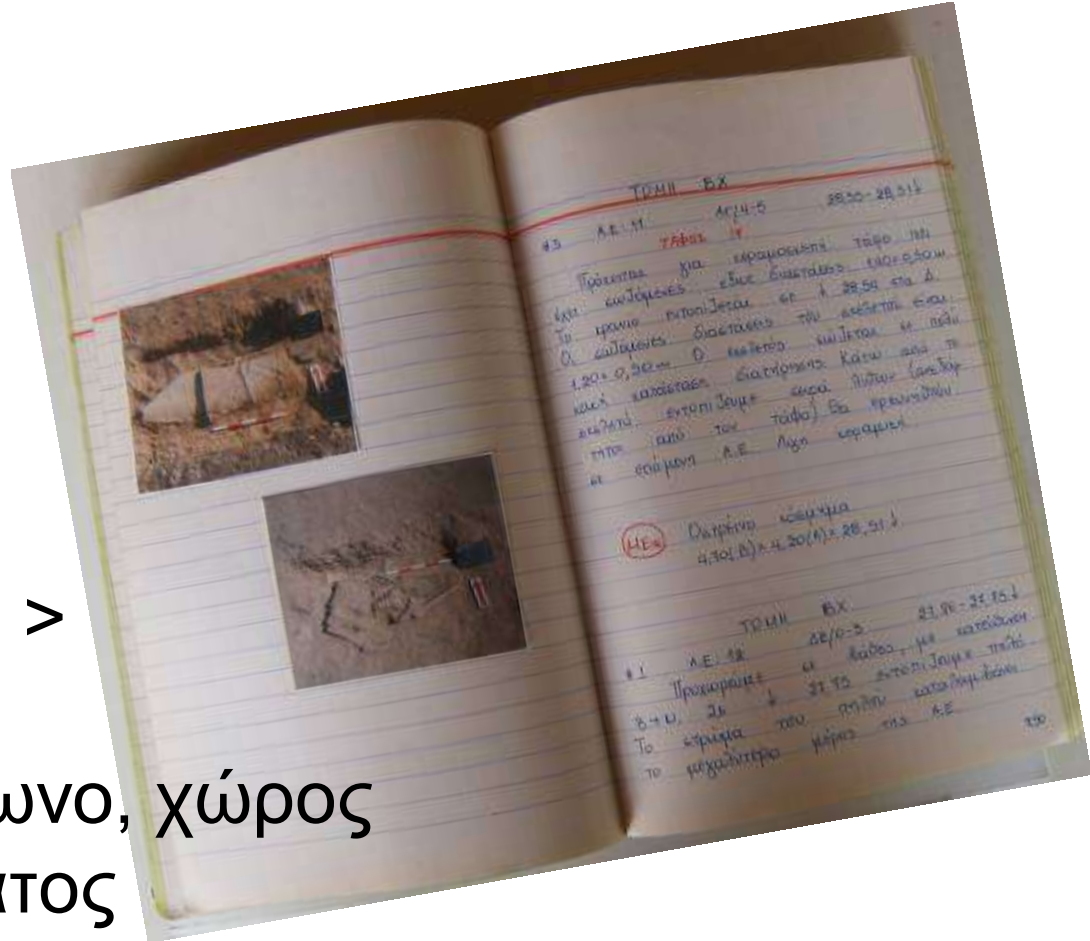 ΤΟΜΗ ΒΧ
#3 Α.Ε: 11 28,55-28,51↓
ΤΑΦΟΣ
Πρόκειται για κεραμοσκεπή τάφο που
έχει σωζόμενες
Το κρανίο εντοπίζεται σε ↓ 28,54 στα Δ.
Οι σωζόμενες διαστάσεις του σκελετού είναι:
1,20×0,30m Ο σκελετός σώζεται σε πολύ
κακή κατάσταση διατήρησης. Κάτω από το
σκελετό εντοπίζουμε σειρά λίθων
από τον τάφο) θα ερευνηθούν
σε επόμενη Α.Ε. Λίγη κεραμική.
ΜΕ Οστρέινο κόσμημα
4,70(Β)×4,20(Α)×28,51↓
ΤΟΜΗ ΒΧ
#1 Α.Ε: 12
Προχωρούμε σε βάθος, με κατεύθυνση
Β→Ν. Σε ↓ 27,75 εντοπίζουμε πηλό
Το στρώμα του πηλού καταλαμβάνει
το μεγαλύτερο μέρος της Α.Ε.
>
ωνο, χώρος
ατος